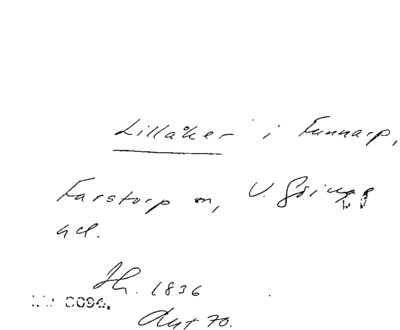 Lillåker i Funnarp,
Farstorp sn, V. Göinge
hd.
Jh. 1836
0094.
Ant 70.